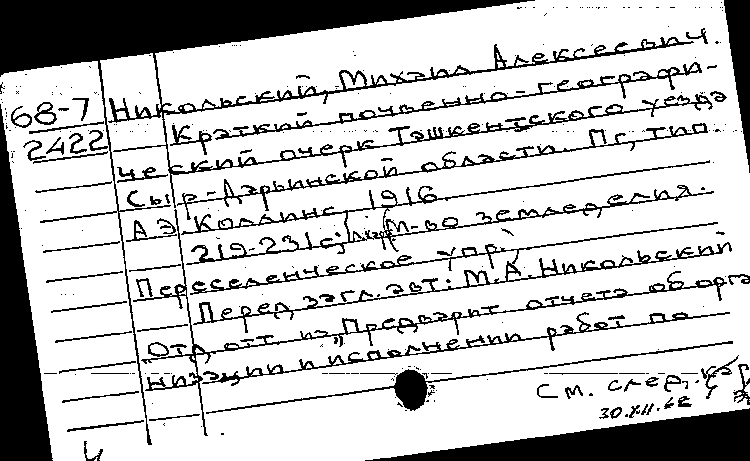 68-7 Никольский, Михаил Алексеевич.
2422 Краткий почвенно-географи-
ческий очерк Ташкентского уезда
Сыр-Дарьинской области. Пг, тип.
А.Э. Коллинс, 1916.
219-231 с; (М-во земледелия.
Переселенческое упр.)
Перед загл. авт: М.А. Никольский
„Отд. отт. из „Предварит отчета об орга
низации и исполнении работ по
См. след. кар
30.XII.68